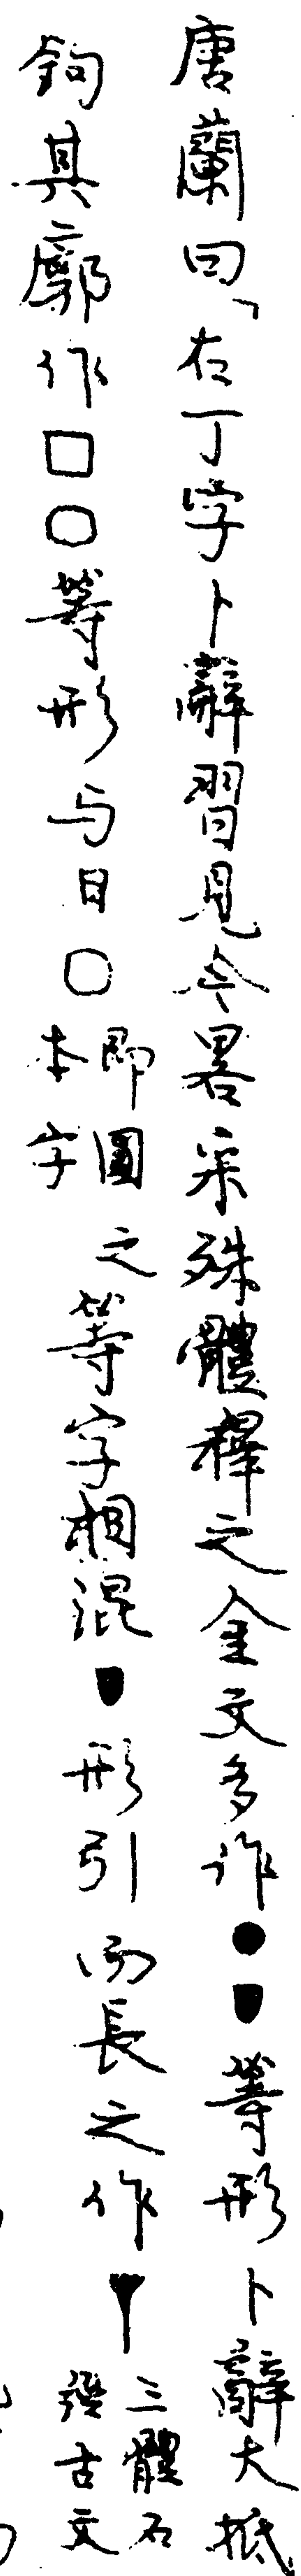 唐蘭曰「右丁字卜辭習見今畧采殊體釋之金文多作●▼等形卜辭大抵
鉤其廓作□○等形与日○即圓本字之等字相混▼形引而長之作丅三體石經古文